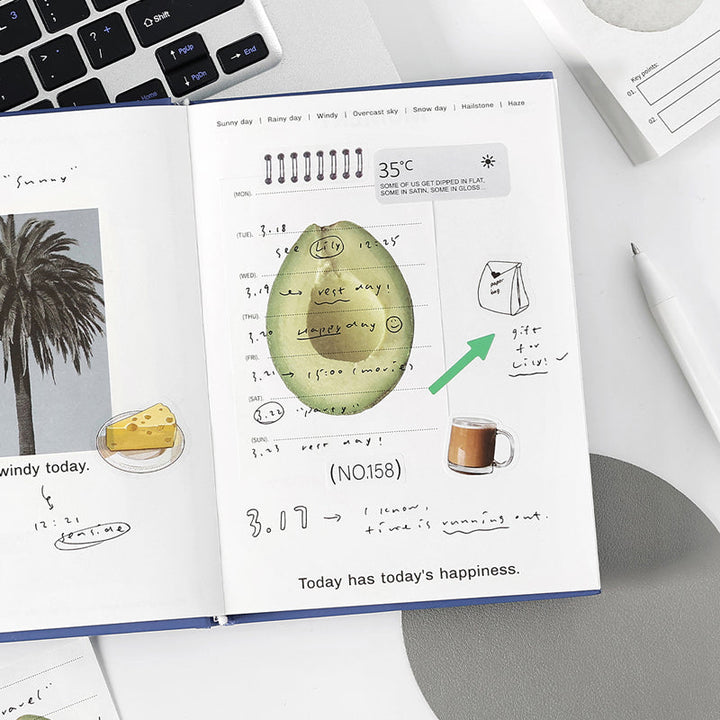 3
Shift
?
/
PgUp
PgDn
End
Home
"Sunny"
windy today.
12:21
seaside
Sunny day | Rainy day | Windy | Overcast sky | Snow day | Hailstone | Haze
35°C
SOME OF US GET DIPPED IN FLAT,
SOME IN SATIN, SOME IN GLOSS...
(MON).
(TUE). 3.18
see Lily 12:25
(WED).
3.19 → rest day!
(THU).
3.20 Happy day
(FRI).
3.21 → 15:00 (movie)
(SAT).
3.22 "party"
(SUN).
3.23 rest day!
(NO.158)
paper
bag
gift
for
Lily! ✓
3.17 → I know,
time is running out.
Today has today's happiness.
Key points:
01.
02.